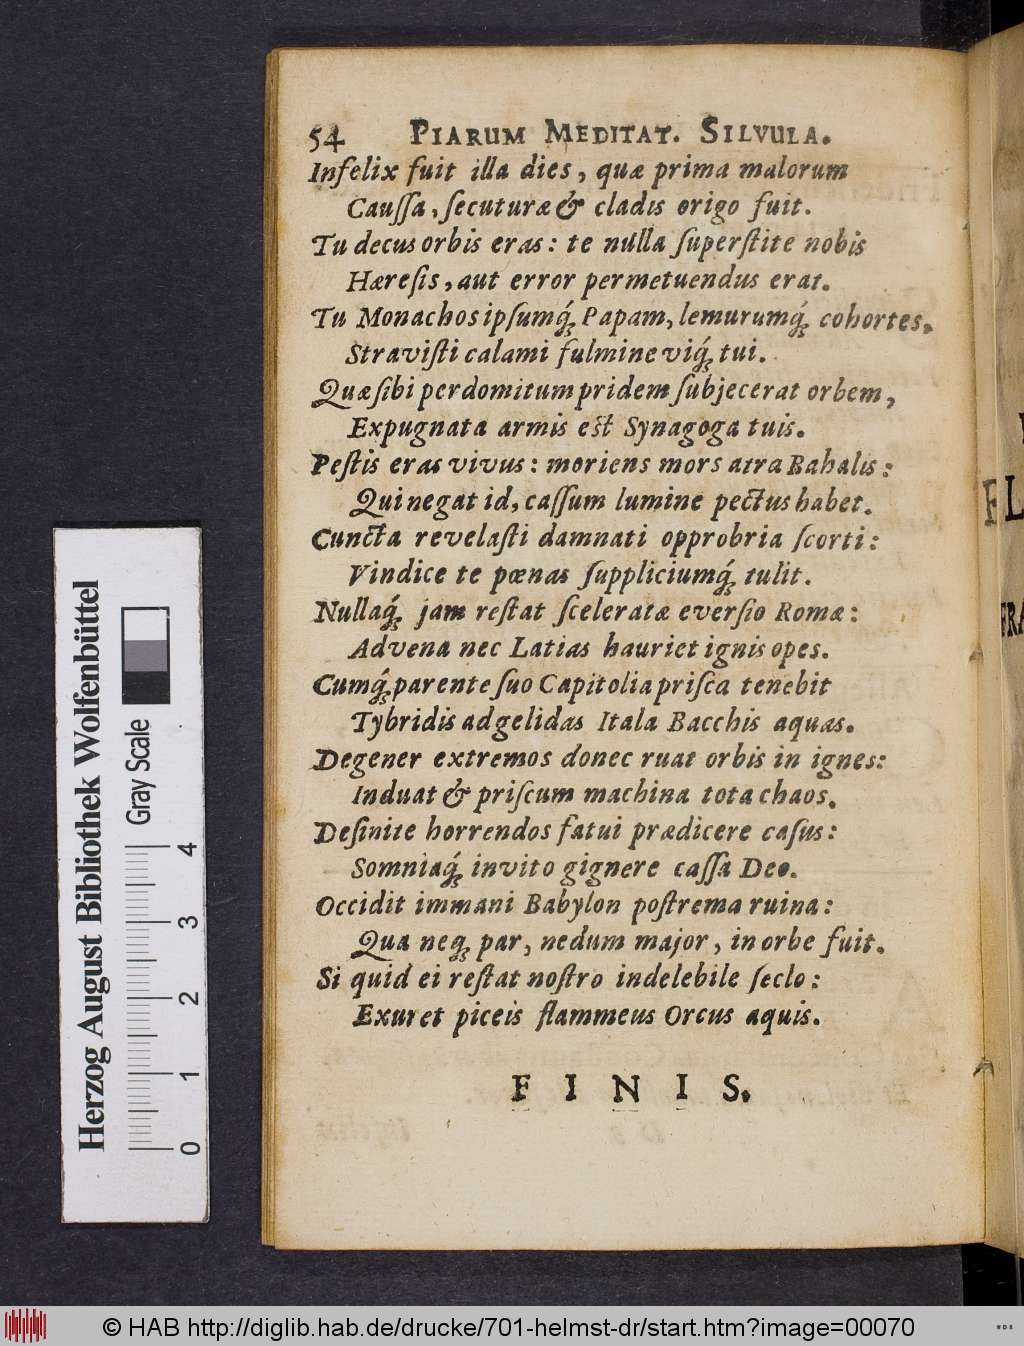 54 PIARUM MEDITAT. SILVULA.
Infelix fuit illa dies, quæ prima malorum
Cauſſa, ſecuturæ & cladis origo fuit.
Tu decus orbis eras: te nulla ſuperſtite nobis
Hæreſis, aut error permetuendus erat.
Tu Monachos ipſumq́ꝫ Papam, lemurumq́ꝫ cohortes,
Straviſti calami fulmine viq́ꝫ tui.
Quæ ſibi perdomitum pridem ſubjecerat orbem,
Expugnata armis eſt Synagoga tuis.
Peſtis eras vivus: moriens mors atra Bahalis:
Qui negat id, caſſum lumine pectus habet.
Cuncta revelaſti damnati opprobria ſcorti:
Vindice te pœnas ſuppliciumq́ꝫ tulit.
Nullaq́ꝫ jam reſtat ſceleratæ everſio Romæ:
Advena nec Latias hauriet ignis opes.
Cumq́ꝫ parente ſuo Capitolia priſca tenebit
Tybridis ad gelidas Itala Bacchis aquas.
Degener extremos donec ruat orbis in ignes:
Induat & priſcum machina tota chaos.
Deſinite horrendos fatui prædicere caſus:
Somniaq́ꝫ invito gignere caſſa Deo.
Occidit immani Babylon poſtrema ruina:
Qua neqꝫ par, nedum major, in orbe fuit.
Si quid ei reſtat noſtro indelebile ſeclo:
Exuret piceis flammeus Orcus aquis.
FINIS.
FL
FRA
Herzog August Bibliothek Wolfenbüttel
Gray Scale
0 1 2 3 4
© HAB http://diglib.hab.de/drucke/701-helmst-dr/start.htm?image=00070